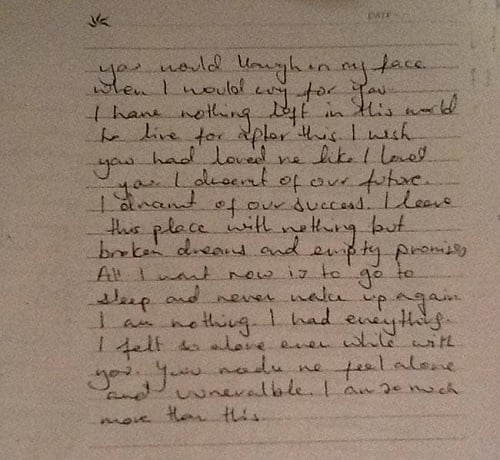 DATE
you would laugh in my face
when I would cry for you
I have nothing left in this world
to live for after this. I wish
you had loved me like I loved
you. I dreamt of our future.
I dreamt of our success. I leave
this place with nothing but
broken dreams and empty promises
All I want now is to go to
sleep and never wake up again
I am nothing. I had everything.
I felt so alone even while with
you. You made me feel alone
and vunerable. I am so much
more than this.